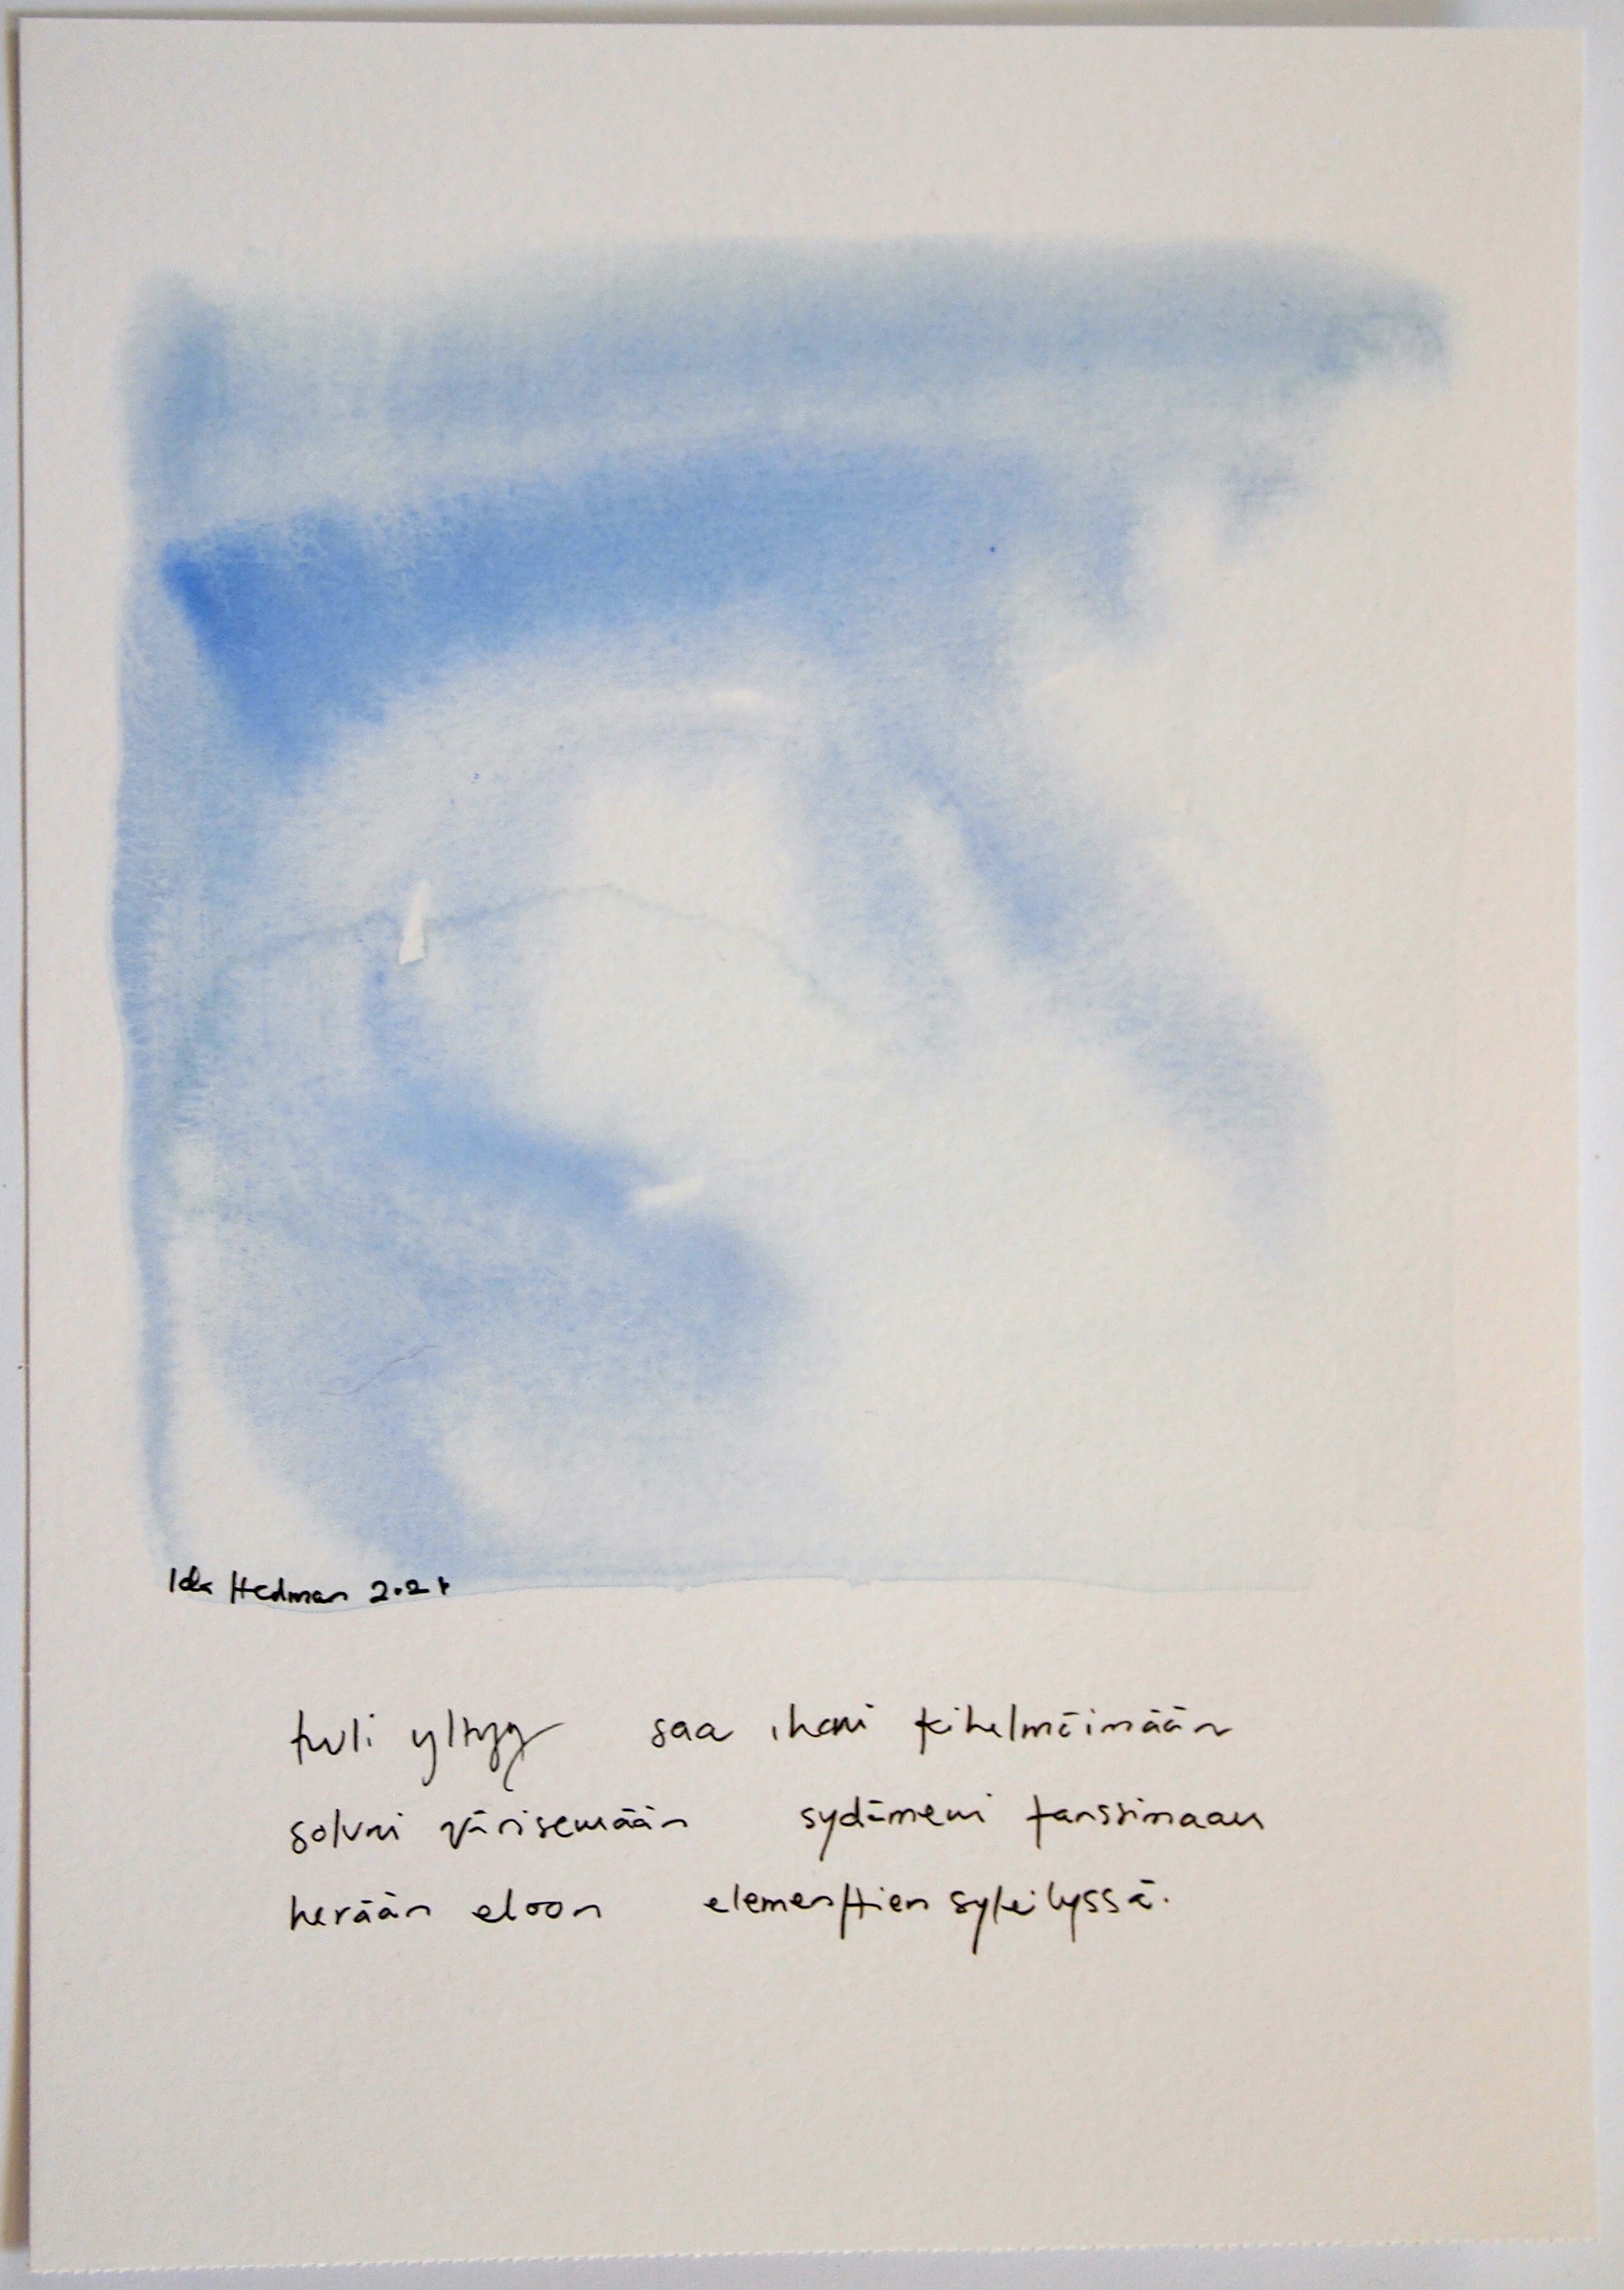 Ida Hedman 2021
tuli yltyy saa ihoni kihelmöimään
soluni värisemään sydämeni tanssimaan
herään eloon elementtien sykeilyssä.